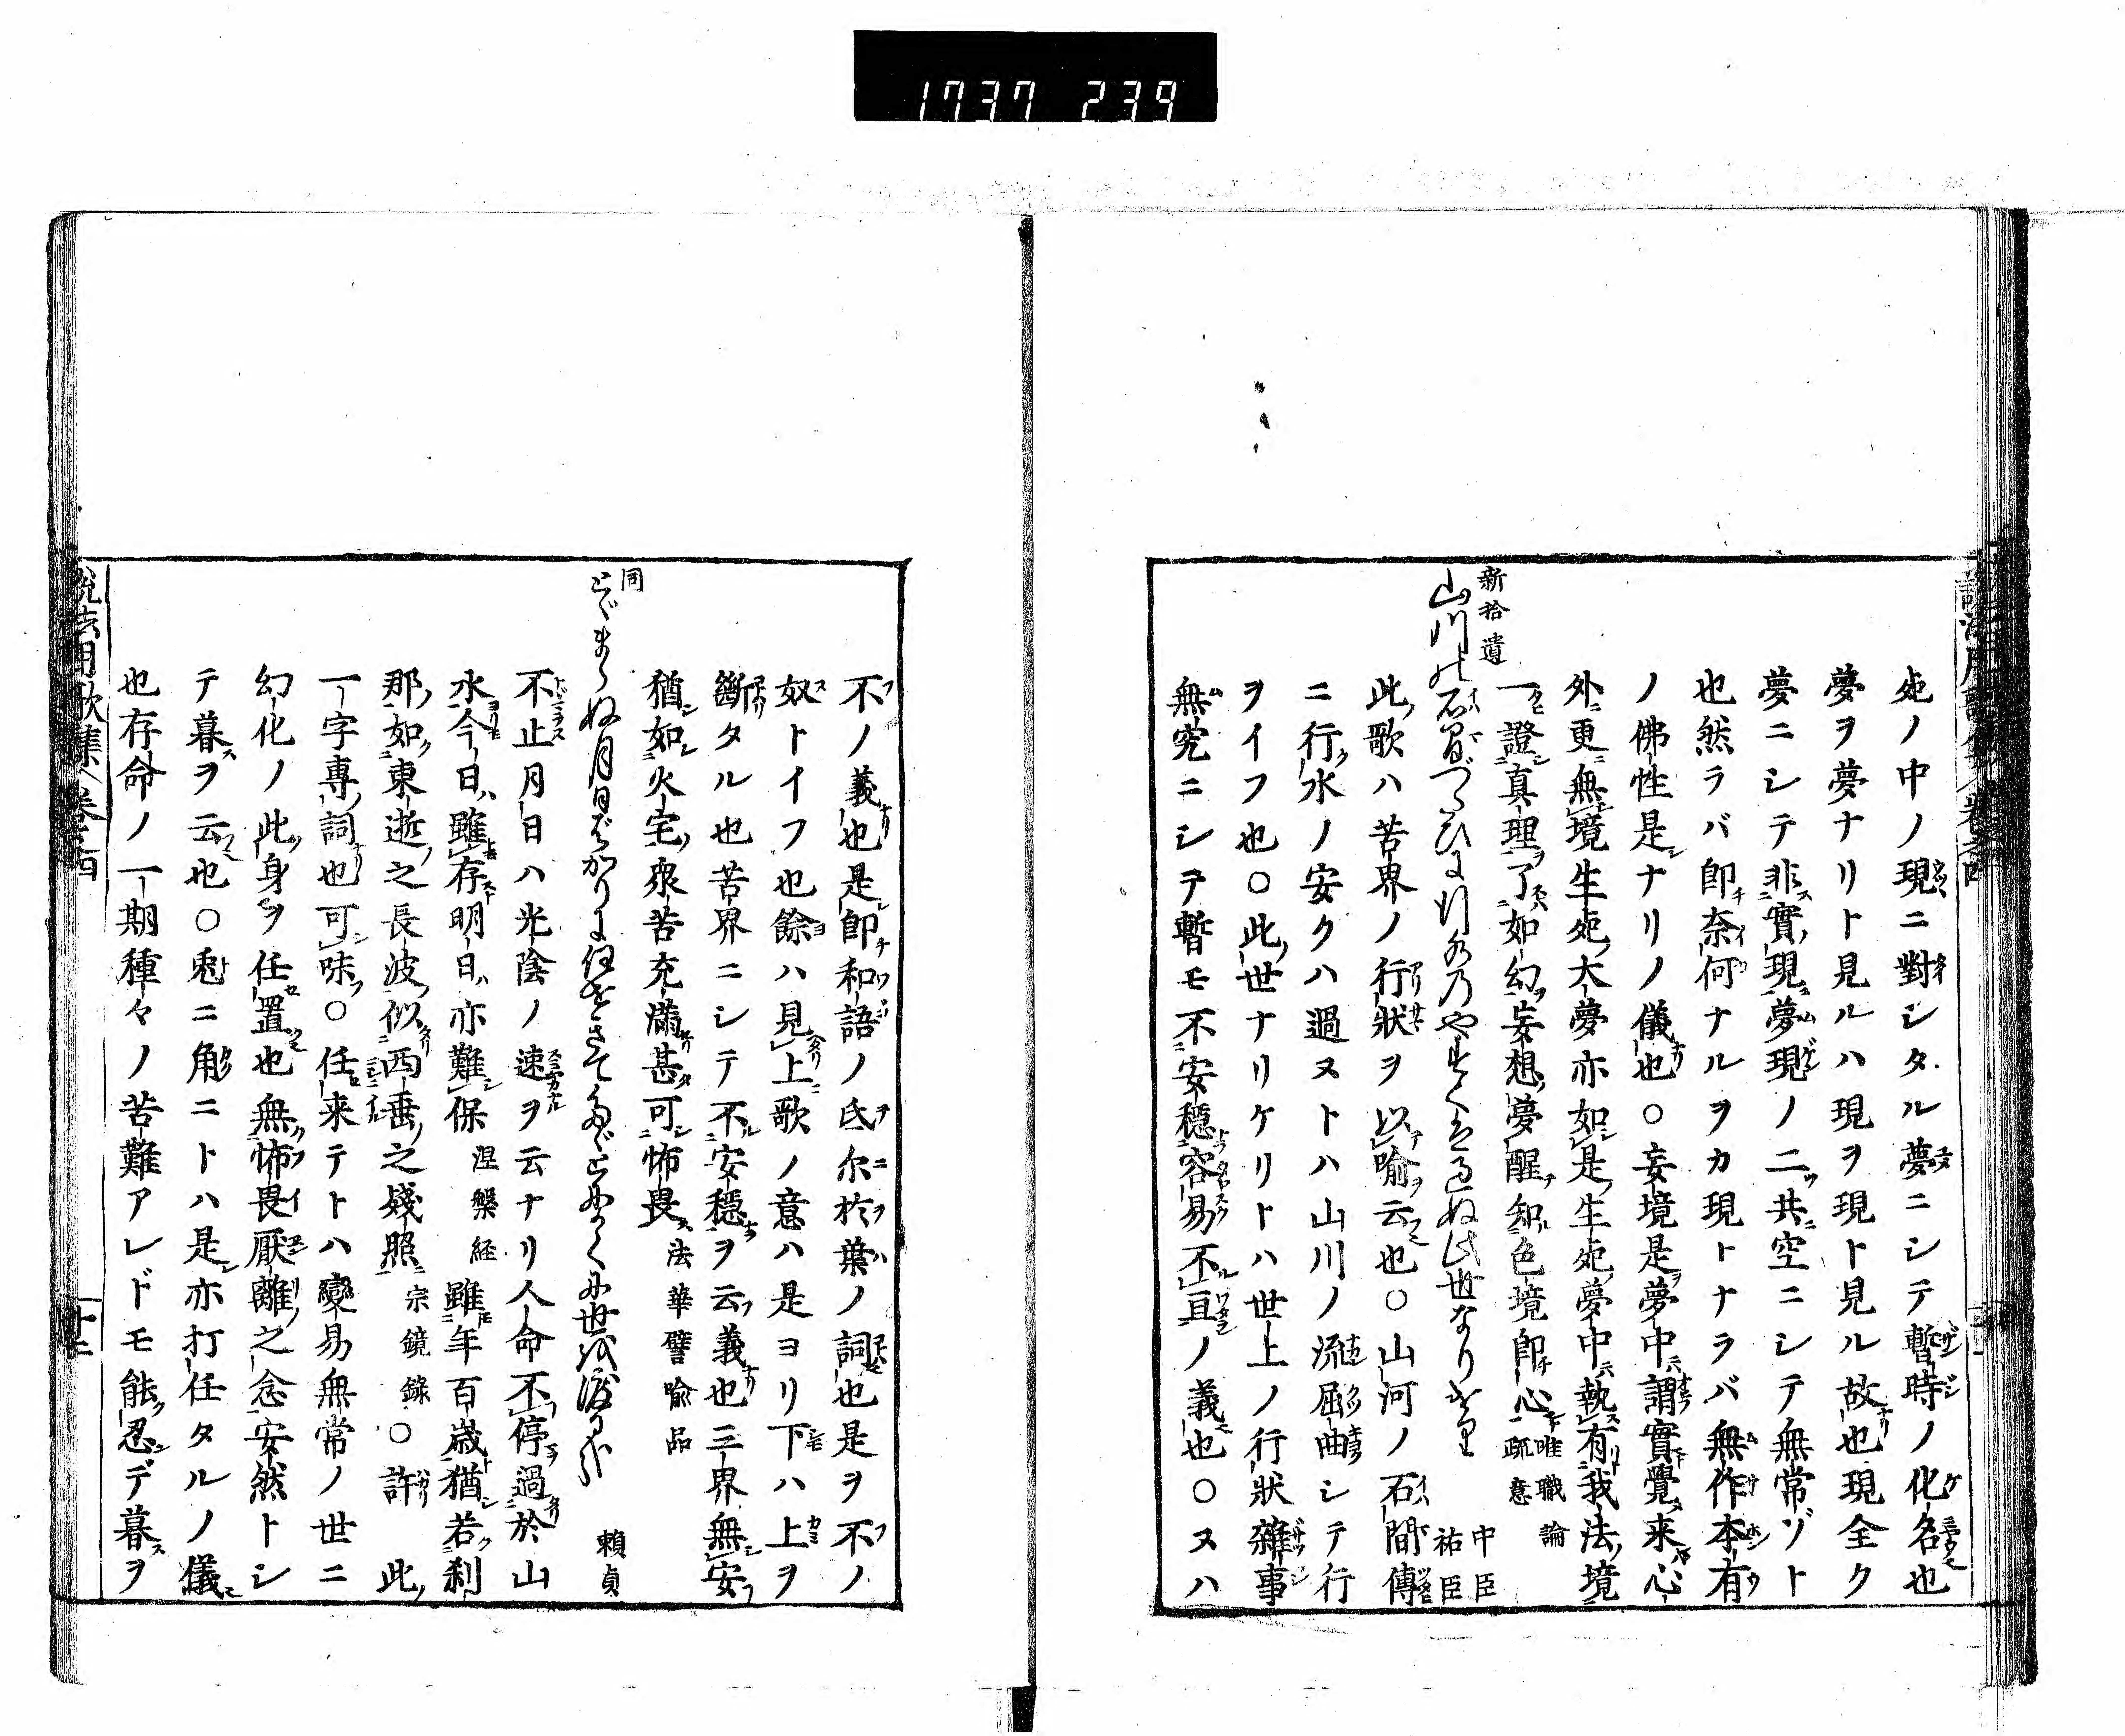 1737 239
死ノ中ノ現ニ對シタル夢ニシテ暫時ノ化名也
夢ヲ夢ナリト見ルハ現ヲ現ト見ル故也現全ク
夢ニシテ非實現夢現ノ二共空ニシテ無常ゾト
也然ラバ即奈何ナルヲカ現トナラバ無作本有
ノ佛性是ナリノ儀也〇妄境是夢中謂實覺来心
外更無境生死大夢亦如是生死夢中執有我法境
一證真理了如幻妄想夢醒知色境即心唯識論疏意
新拾遺
山川の石間づたひに行水のやすくはすぎぬ此世なりけり
中臣祐臣
此歌ハ苦界ノ行状ヲ以喩云也〇山河ノ石間傳
ニ行水ノ安クハ過ヌトハ山川ノ流屈曲シテ行
ヲイフ也〇此世ナリケリトハ世上ノ行状雑事
無究ニシテ暫モ不安穏容易不亘ノ義也〇ヌハ
不ノ義也是即和語ノ氐尓於葉ノ詞也是ヲ不ノ
奴トイフ也餘ハ見上歌ノ意ハ是ヨリ下ハ上ヲ
斷タル也苦界ニシテ不安穏ヲ云義也三界無安
猶如火宅衆苦充滿甚可怖畏法華譬喩品
同
とゞまらぬ月日ばかりに任をきて
頼貞
不止月日ハ光陰ノ速ヲ云ナリ人命不停過於山
水今日雖存明日亦難保涅槃経雖年百歳猶若刹
那如東逝之長波似西垂之残照宗鏡録〇許此
一字專詞也可味〇任来テトハ變易無常ノ世ニ
幻化ノ此身ヲ任置也無怖畏厭離之念安然トシ
テ暮ヲ云也〇兎ニ角ニトハ是亦打任タルノ儀
也存命ノ一期種々ノ苦難アレドモ能忍デ暮ヲ
説法用歌集 巻之四